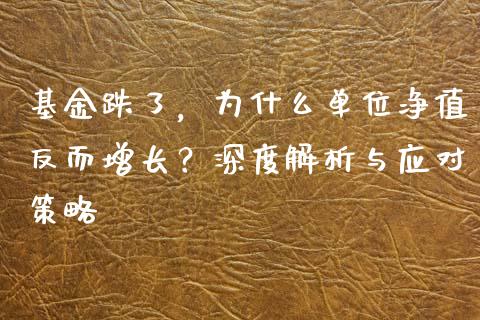 基金跌了，为什么单位净值
反而增长？深度解析与应对
策略